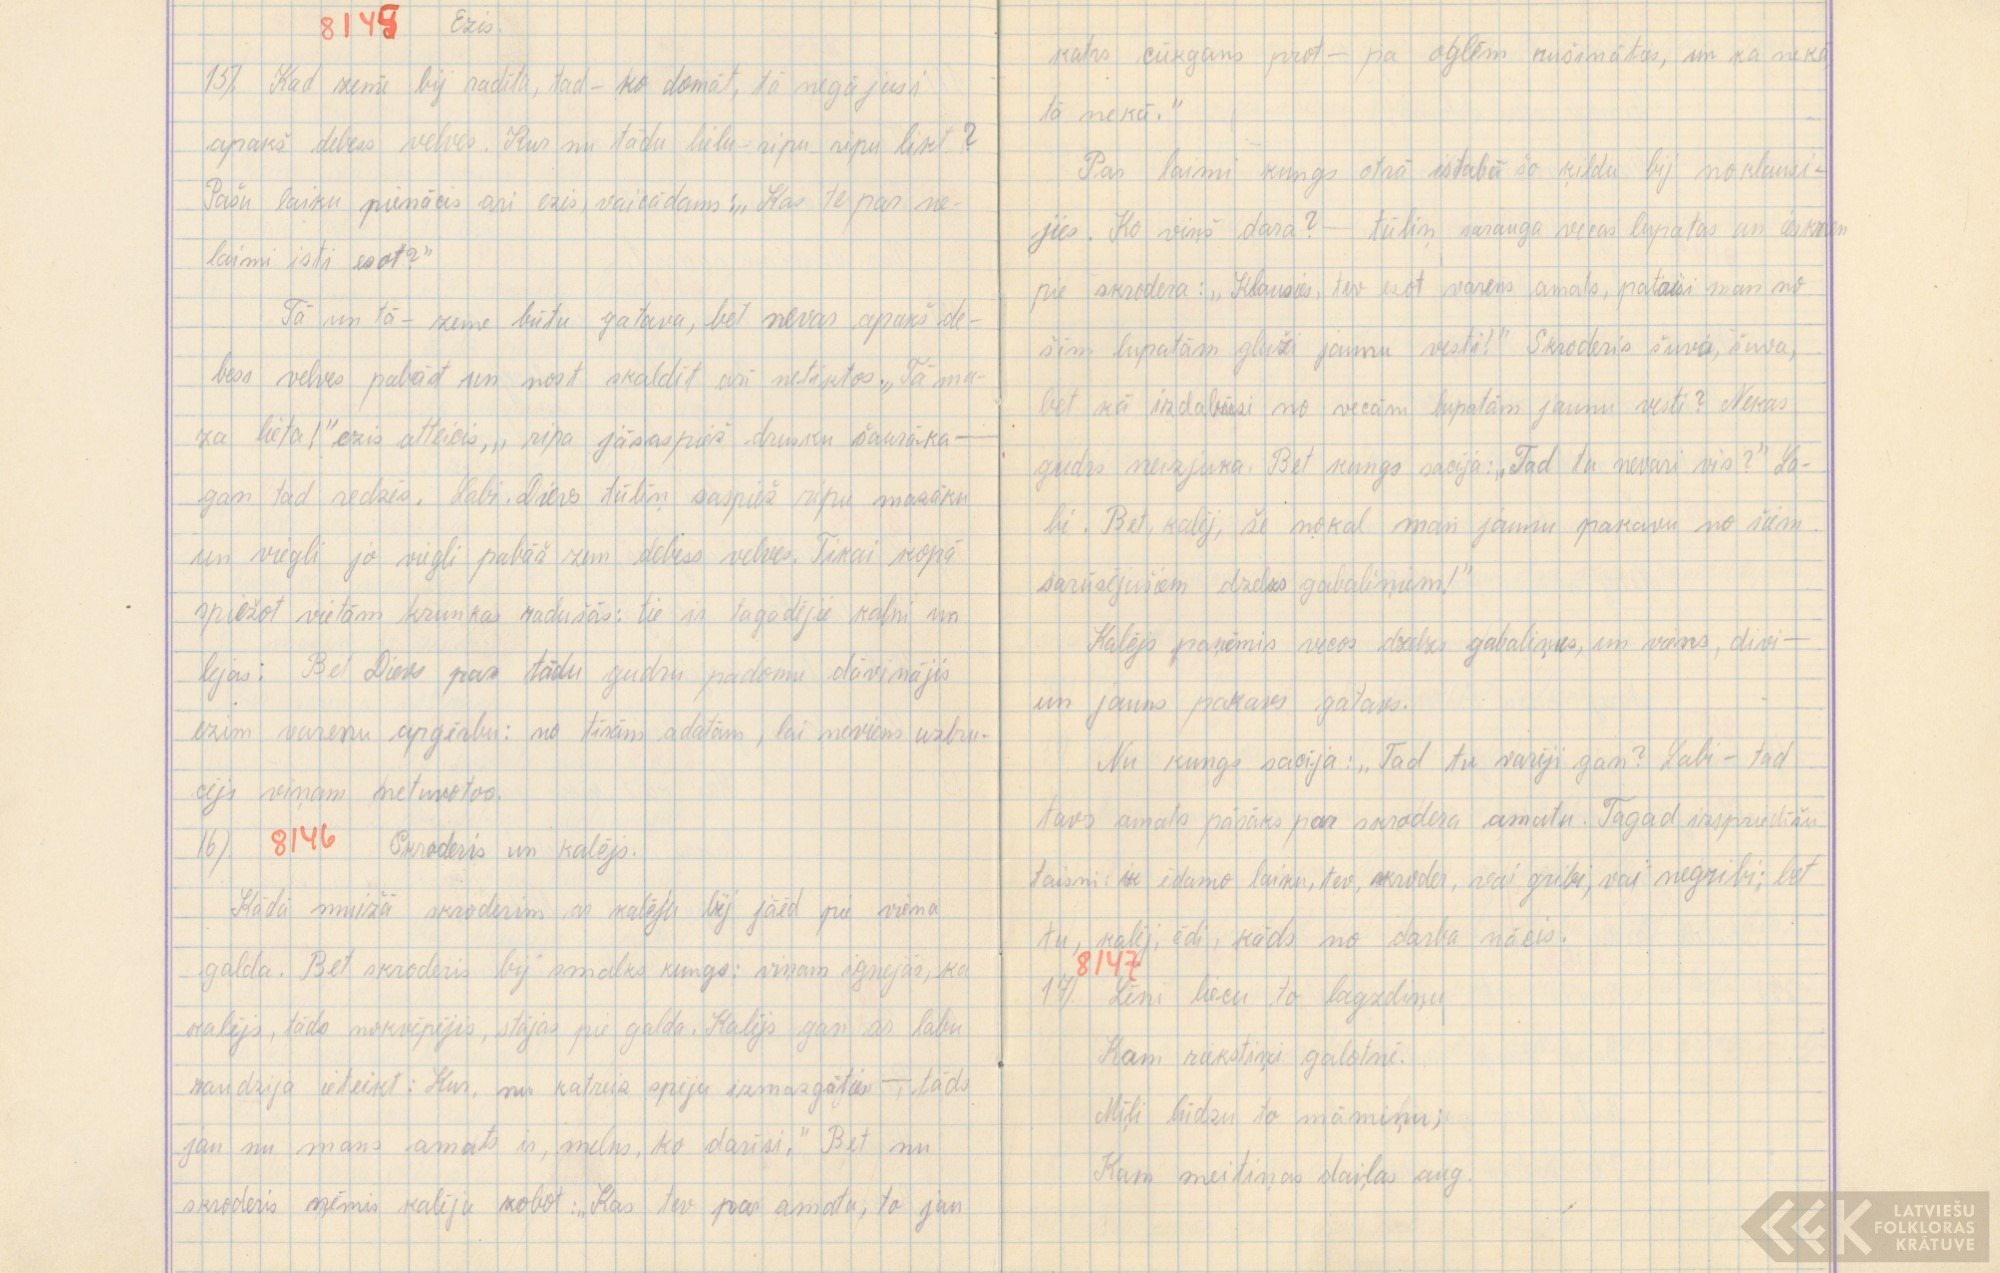 8145 Ezis.
15). Kad zeme bij radīta, tad - ko domāt, tā negājusi
apakš debess velves. Kur nu tādu lielu ripu ripu likt?
Pašu laiku pienācis arī ezis, vaicādams: „Kas te par ne-
laimi īsti esot?"
Tā un tā - zeme būtu gatava, bet nevar apakš de-
bess velves pabāzt un nost skaldīt arī netiktos. „Tā ma-
za lieta!" ezis atteicis, „ripa jāsaspiež drusku šaurāka —
gan tad redzēs. Labi. Dievs tūliņ saspiež ripu mazāku
un viegli jo viegli pabāž zem debess velves. Tikai kopā
spiežot vietām krunkas radušās: tie ir tagadējie kalni un
lejas: Bet Dievs par tādu gudru padomu dāvinājis
ezim varenu apģērbu: no tīrām adatām, lai neviens uzbru-
cējs viņam netuvotos.
16). 8146 Skroderis un kalējs.
Kādā muižā skroderim ar kalēju bij jāēd pie viena
galda. Bet skroderis bij smalks kungs: viņam ignejās, ka
kalējs, tāds nokvēpējis, stājas pie galda. Kalējs gan ar labu
raudzīja ieteikt: Kur, nu katreiz spēju izmazgāties — tāds
jau nu mans amats ir, melns, ko darīsi." Bet nu
skroderis ņēmis kalēju zobot: „Kas tev par amatu, to jau
katrs cūkgans prot - pa oglēm rušināties, un ka nekā,
tā nekā."
Par laimi kungs otrā istabā šo ķildu bij noklausī-
jies. Ko viņš dara? - tūliņ sarauga vecas lupatas un ieskrien
pie skrodera: „Klausies, tev esot varens amats, pataisi man no
šīm lupatām gluži jaunu vesti!" Skroderis šuva, šuva,
bet kā izdabūsi no vecām lupatām jaunu vesti? Nekas
gudrs neizjuka. Bet kungs sacīja: „Tad tu nevari vis?" La-
bi. Bet, kalēj, še nokal man jaunu pakavu no šiem
sarūsējušiem dzelzs gabaliņiem!"
Kalējs paņēmis vecos dzelzs gabaliņus, un viens, divi —
un jauns pakavs gatavs.
Nu kungs sacīja: „Tad tu varēji gan? Labi - tad
tavs amats pārāks par skrodera amatu. Tagad izspriedīšu
taisni: ēdamo laiku, tev, skroder, vai gribi, vai negribi; bet
tu, kalēj, ēdi, kāds no darba nācis.
8147
17). Lēni liecu to lagzdiņu
Kam riekstiņi galotnē.
Mīļi lūdzu to māmiņu;
Kam meitiņas daiļas aug.
LATVIEŠU
FOLKLORAS
KRĀTUVE